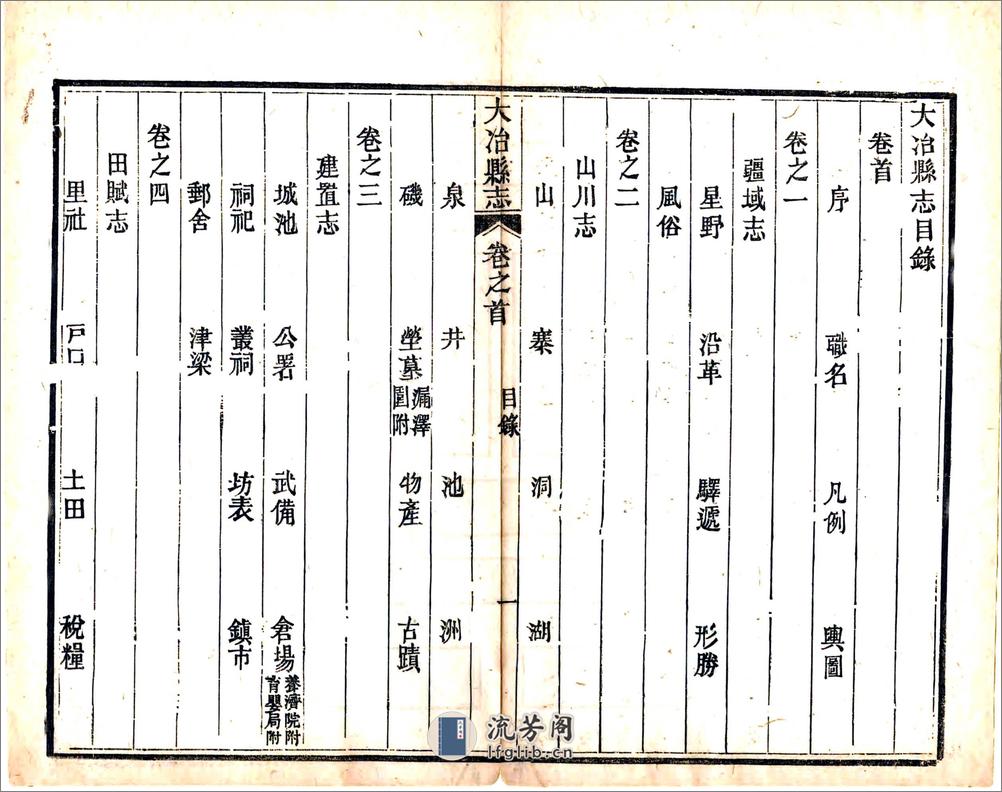 大冶縣志目錄
卷首
序 職名 凡例 輿圖
卷之一
疆域志
星野 沿革 驛遞 形勝
風俗
卷之二
山川志
山 寨 洞 湖
大冶縣志 卷之首 目錄 一
泉 井 池 洲
磯 塋墓 漏澤園附 物產 古蹟
卷之三
建置志
城池 公署 武備 倉場 養濟院附 育嬰局附
祠祀 叢祠 坊表 鎮市
郵舍 津梁
卷之四
田賦志
里社 戶口 土田 稅糧
流芳阁
lfglib.cn